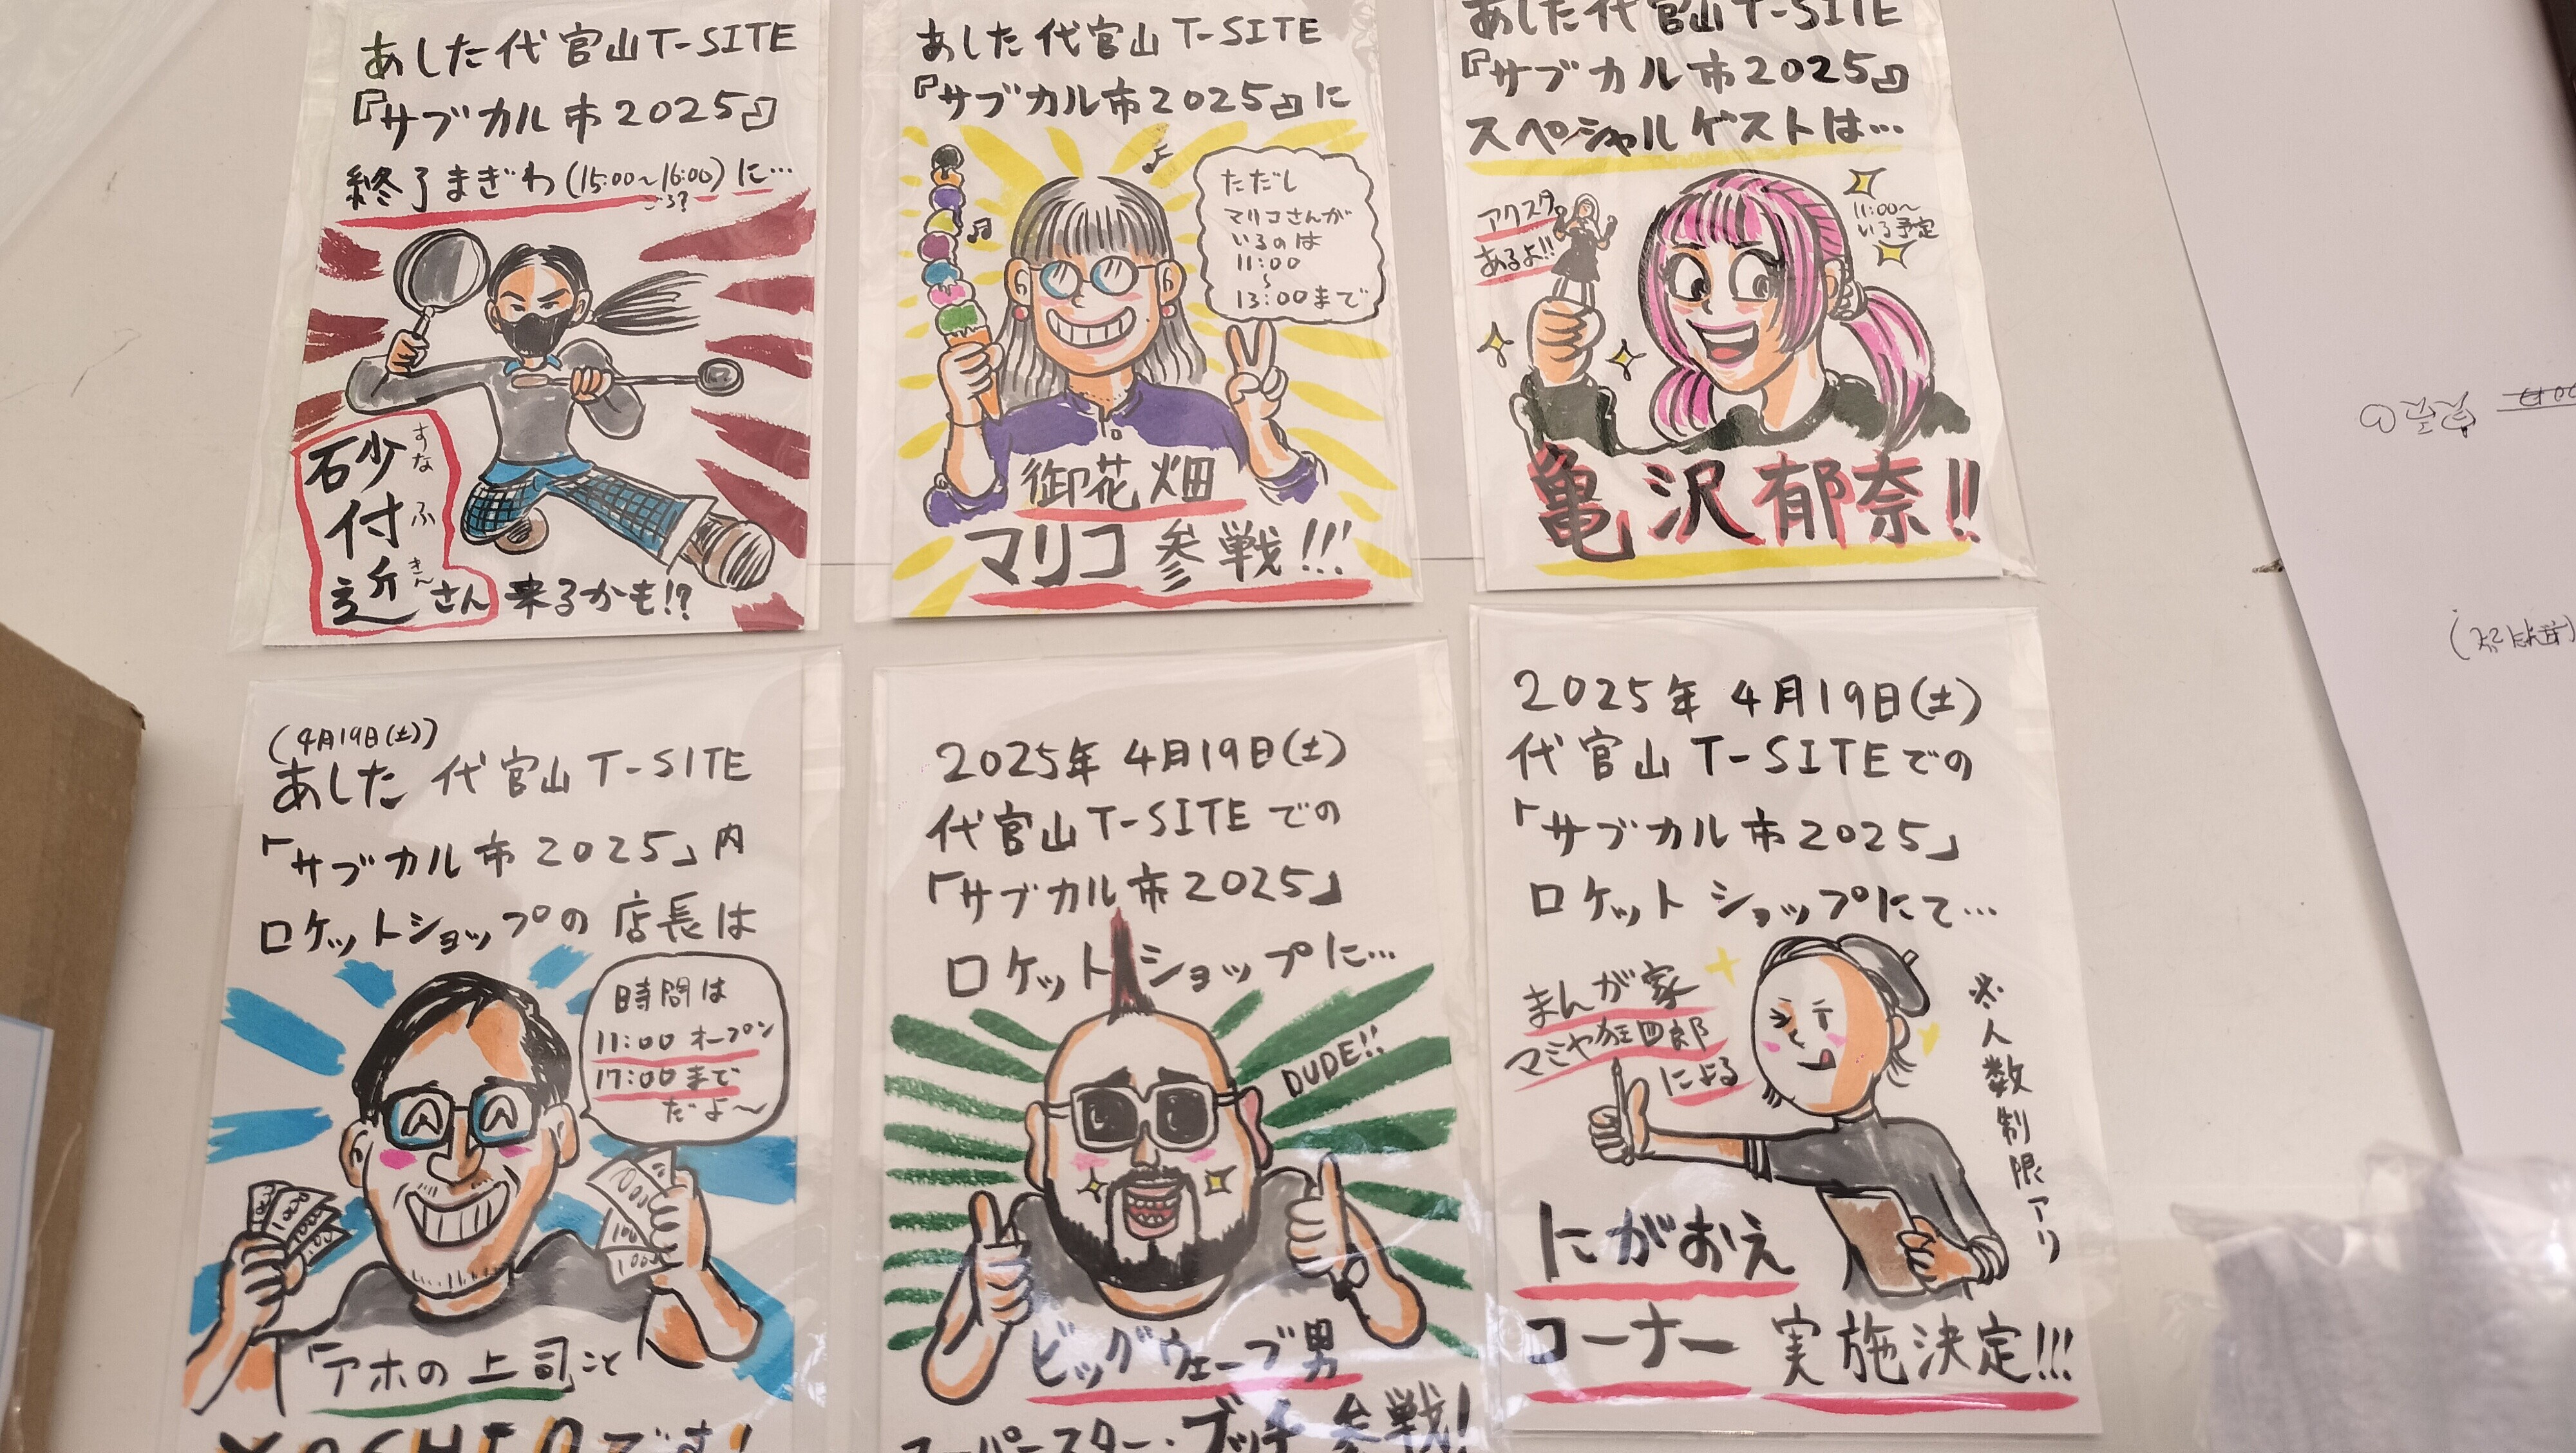 あした代官山T-SITE
『サブカル市2025』
終了まぎわ(15:00~16:00)に…
ごろ?
砂付近さん
すなふきん
来るかも!?
あした代官山T-SITE
『サブカル市2025』に
ただし
マリコさんが
いるのは
11:00
~
13:00まで
御花畑
マリコ参戦!!!
あした代官山T-SITE
『サブカル市2025』
スペシャルゲストは…
アクスタ
あるよ!!
11:00~
いる予定
亀沢郁奈!!
(4月19日(土))
あした代官山T-SITE
「サブカル市2025」内
ロケットショップの店長は
時間は
11:00オープン
17:00まで
だよ~
「アホの上司」こと
YOSHIDAです!
2025年4月19日(土)
代官山T-SITEでの
「サブカル市2025」
ロケットショップに…
DUDE!!
ビッグウェーブ男
スーパースター・ブッチ参戦!
2025年4月19日(土)
代官山T-SITEでの
「サブカル市2025」
ロケットショップにて…
まんが家
マミヤ狂四郎
による
※人数制限アリ
にがおえ
コーナー実施決定!!!